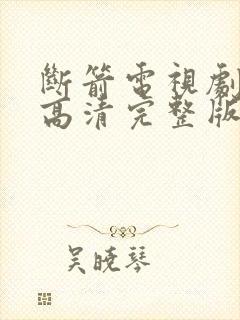 斷箭電視劇
高清完整版
吳曉琴